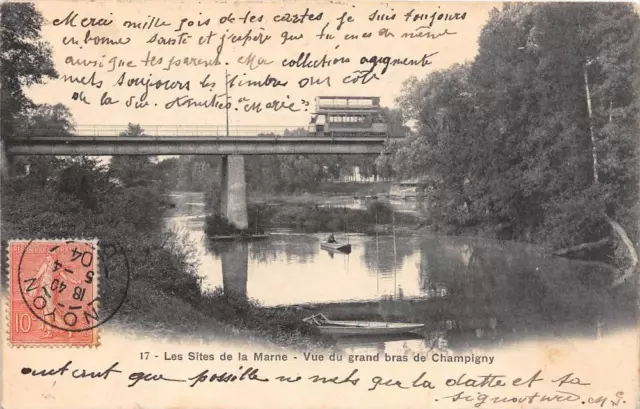 Merci mille fois de tes cartes je suis toujours
en bonne santé et j'espère que tu es de même
ainsi que tes parents. Ma collection augmente
mets toujours les timbres sur ce côté
de la vue. Amitiés. "Marie"
NOYON
18 40
5 -4
04
10
17 - Les Sites de la Marne - Vue du grand bras de Champigny
autant que possible ne mets que la datte et ta
signature. M. G.